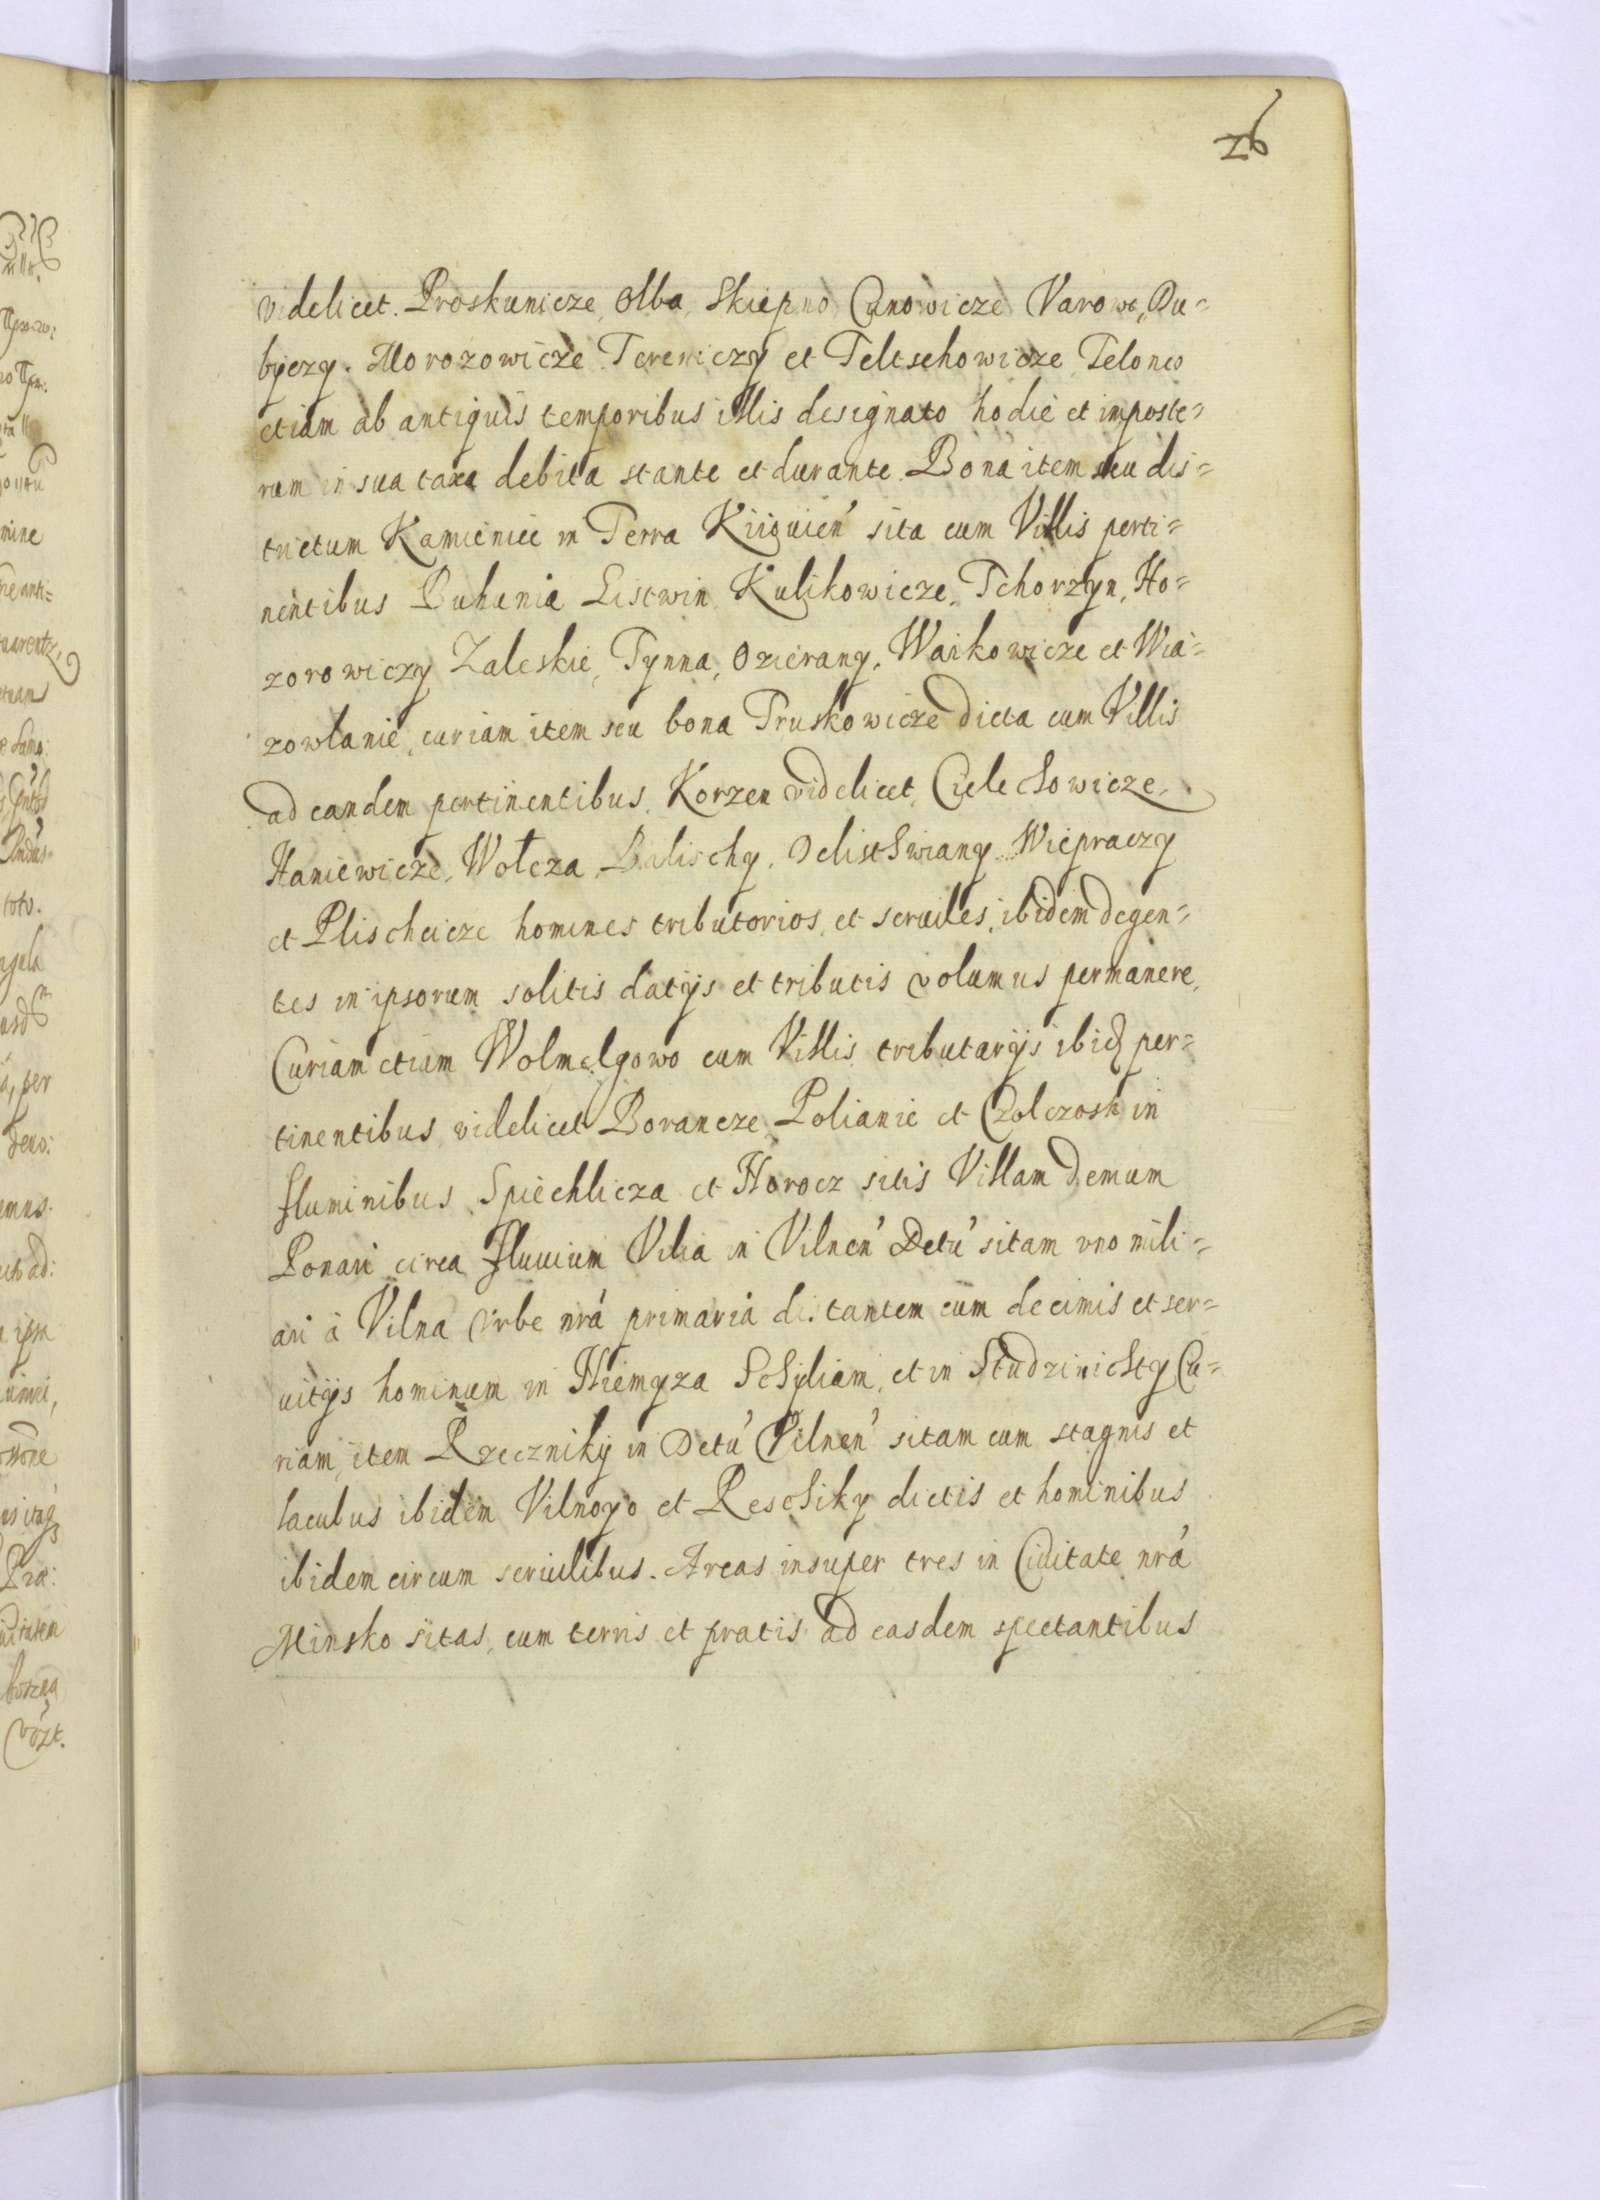 26
videlicet. Proskunicze, Olba, Skiepno, Cunowicze Varowe, Du=
byczy. Morozowicze Tereniczy et Teltschowicze Teloneo
etiam ab antiquis temporibus illis designato hodie et imposte=
rum in sua taxa debita stante et durante. Bona item seu dis=
trictum Kamieniec in Terra Kiiouien' sita cum Villis perti=
nentibus Buhunia Listwin, Kulikowicze, Tchorzyn, Ho=
zorowiczy Zaleskie, Tynna, Ozierany, Waskowicze et Wia=
zowlanie, curiam item seu bona Pruskowicze dicta cum Villis
ad eandem pertinentibus, Korzen videlicet, Cielechowicze,
Haniewicze, Wołcza, Balischy, Wiepraczy
et Plischcicze homines tributorios, et seruiles, ibidem degen=
tes in ipsorum solitis datijs et tributis volumus permanere,
Curiam etiam Wolmelgowo cum Villis tributarijs ibid per=
tinentibus, videlicet Borancze, Polianie et Czolczosk in
fluminibus, Spiechlicza et Horocz sitis Villam demum
Ponari circa fluuium Vilia in Vilnen' Dctu' sitam vno mili=
ari à Vilna Vrbe nrá primaria distantem cum decimis et ser=
uitijs hominum in Niemyza et in Cu=
riam, item Rzeczniky in Dctu' Vilnen' sitam cum stagnis et
lacubus ibidem Vilnoyo et Reschky dictis et hominibus
ibidem circum seruilibus. Areas insuper tres in Ciuitate nrá
Minsko sitas, cum terris et pratis ad easdem spectantibus